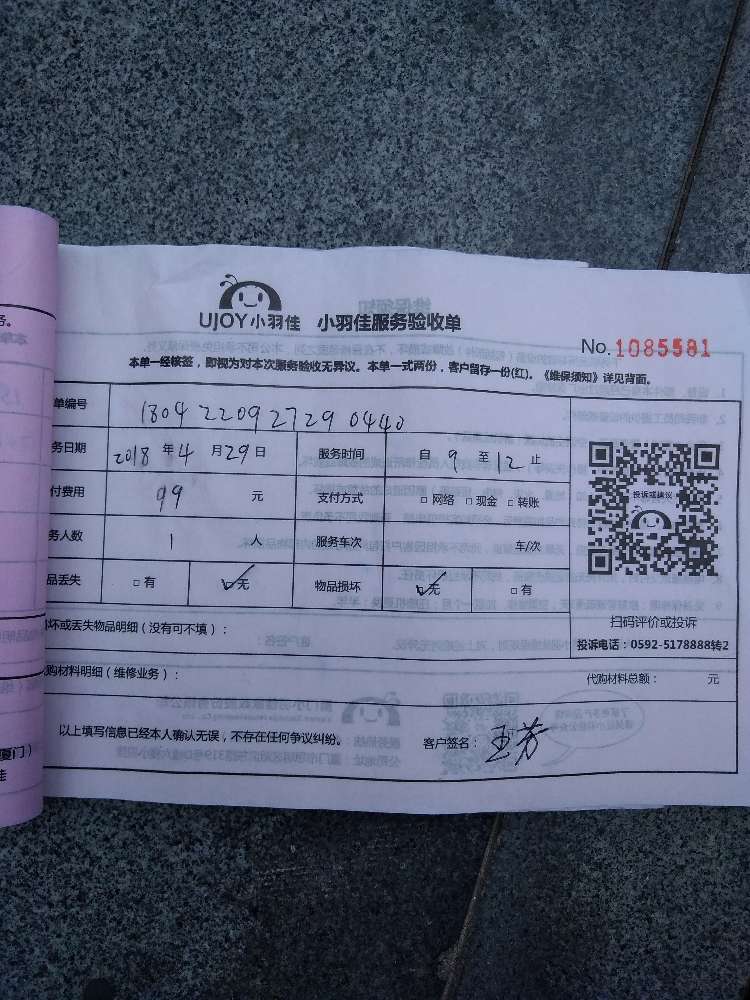 UJOY小羽佳 小羽佳服务验收单
No.1085581
本单一经核签，即视为对本次服务验收无异议。本单一式两份，客户留存一份(红)。《维保须知》详见背面。
单编号 1804220927290440
务日期 2018 年 4 月 29 日 服务时间 自 9 至 12 止
付费用 99 元 支付方式 □网络 □现金 □转账
务人数 1 人 服务车次 车/次
品丢失 □有 ☑无 物品损坏 ☑无 □有
投诉或建议
扫码评价或投诉
投诉电话：0592-5178888转2
坏或丢失物品明细（没有可不填）：
购材料明细（维修业务）： 代购材料总额： 元
以上填写信息已经本人确认无误，不存在任何争议纠纷。 客户签名： 王芳
务。
厦门）
佳